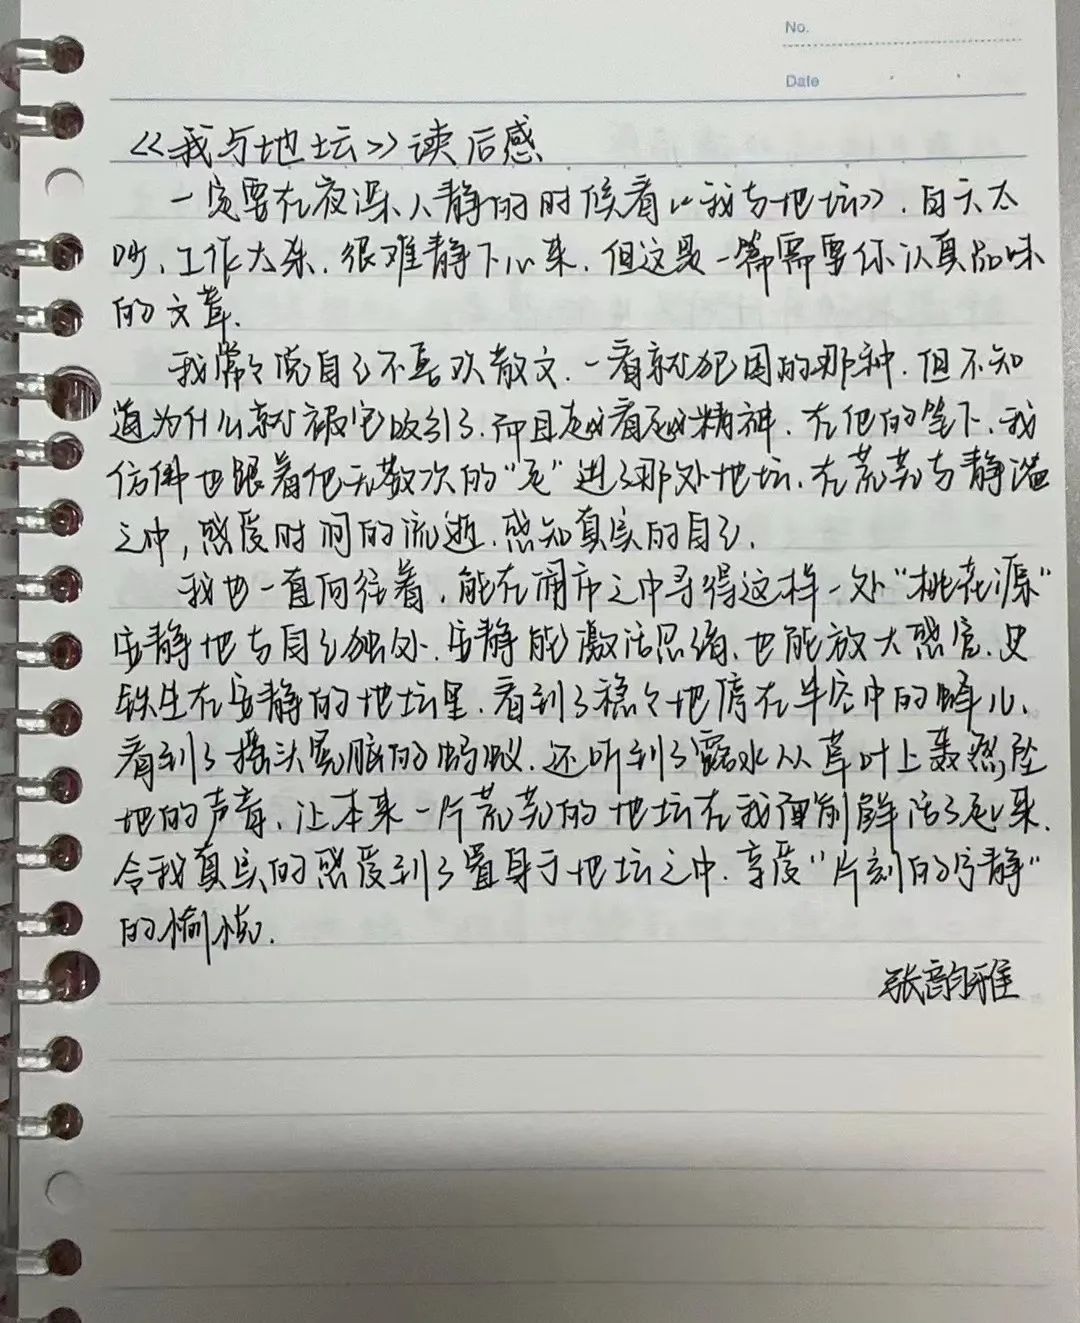 No.
Date
《我与地坛》读后感
一定要在夜深人静的时候看《我与地坛》.白天太
吵,工作太杂,很难静下心来.但这是一篇需要你认真品味
的文章.
我常々说自己不喜欢散文.一看就犯困的那种.但不知
道为什么就被它吸引了.而且越看越精神.在他的笔下.我
仿佛也跟着他无数次的“走”进了那处地坛.在荒芜与静谧
之中,感受时间的流逝.感知真实的自己.
我也一直向往着,能在闹市之中寻得这样一处“桃花源”
安静地与自己独处.安静能激活思绪、也能放大感官.史
铁生在安静的地坛里.看到了稳々地停在半空中的蜂儿、
看到了摇头晃脑的蚂蚁.还听到了露水从草叶上轰然坠
地的声音、让本来一片荒芜的地坛在我面前鲜活了起来.
令我真实的感受到了置身于地坛之中.享受“片刻的宁静”
的愉悦.
张韵雅